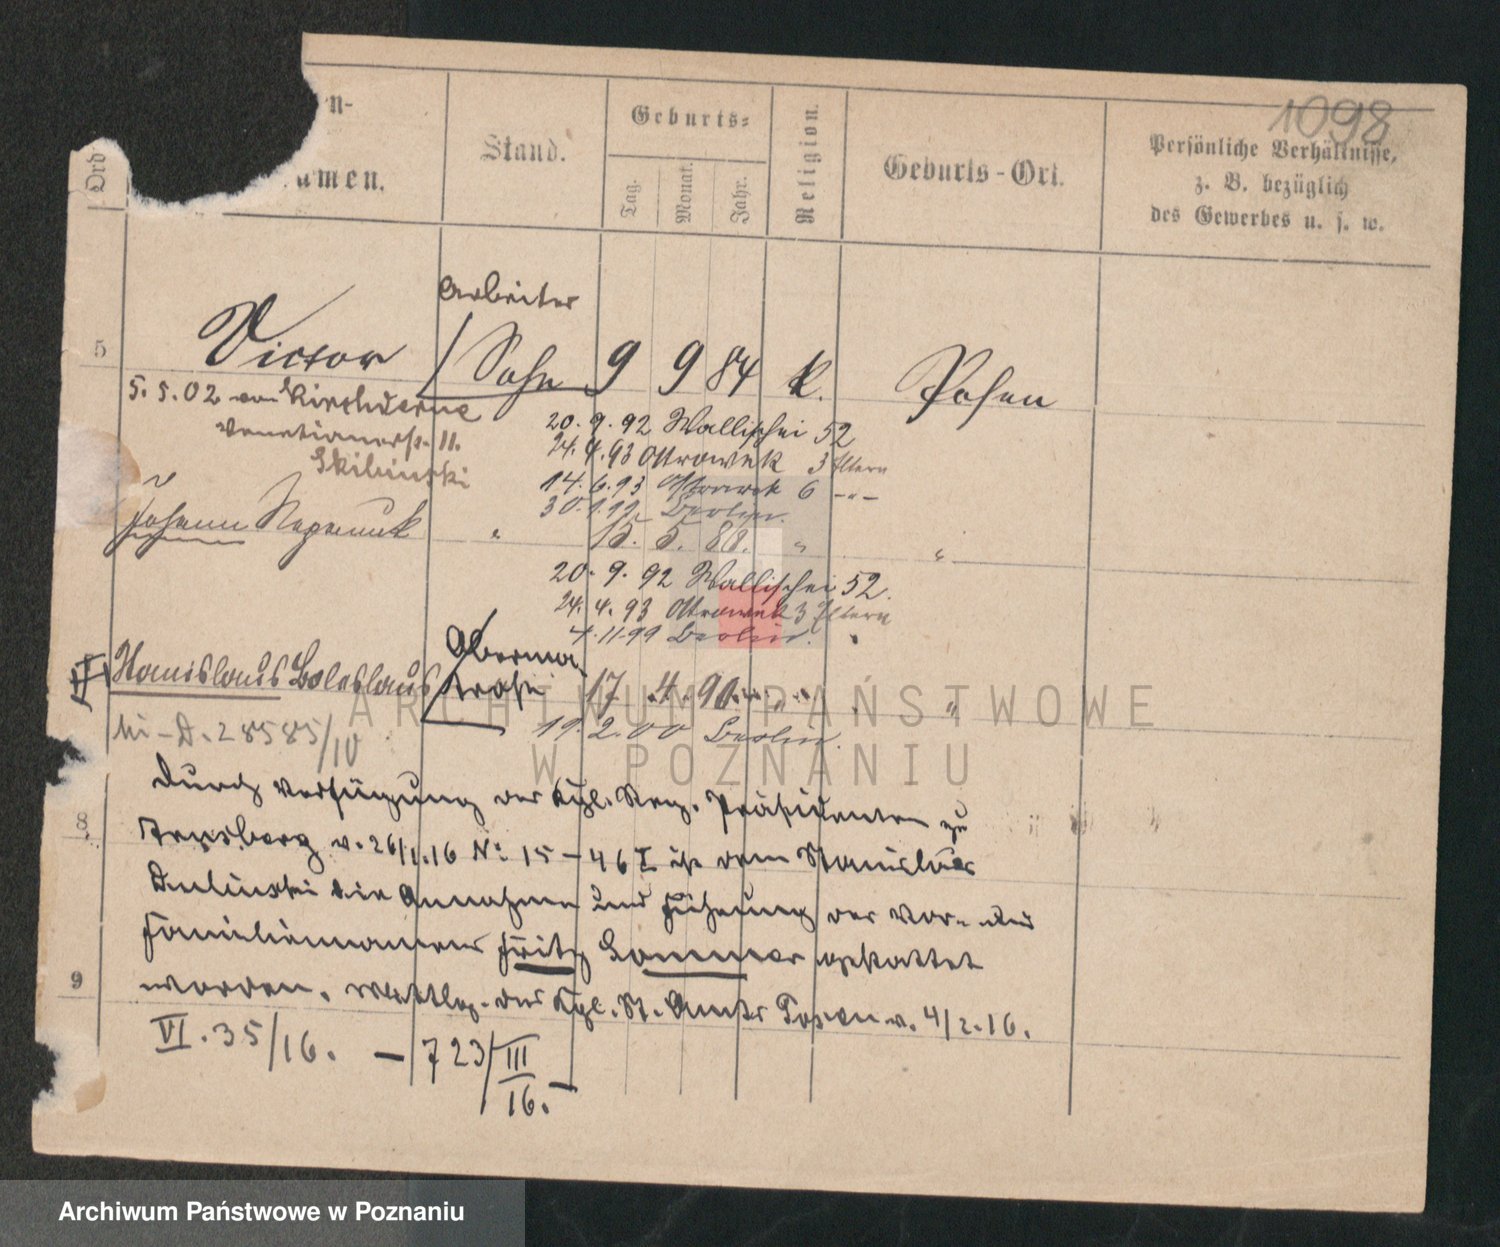 1098
n-
amen.
Ord
Stand.
Geburts=
Tag.
Monat.
Jahr.
Religion.
Geburts-Ort.
Persönliche Verhältnisse,
z. B. bezüglich
des Gewerbes u. s. w.
Arbeiter
5 Victor Sohn 9 9 84 k. Posen
5. 5. 02 von Kirchderne
Venetianerstr. 11.
Skibinski
20. 9. 92 Wallischei 52
24. 4. 93 Ostrowek 3 Eltern
14. 6. 93 Ostrowek 6 -"-
Berlin.
Johann Nepomuk " 15. 5. 88. " "
20. 9. 92 Wallischei 52.
24. 4. 93 Ostrowek 3 Eltern
4. 11. 99 Berlin.
Stanislaus Boleslaus 17 4. 90. " "
19. 2. 00 Berlin.
28585/10
Durch Verfügung des Kgl. Reg. Präsidenten zu
8 Arnsberg v. 26/1.16 No 15-46 I ist dem Stanislaus
die Annahme und Führung des Vor- und
Familiennamens Fritz Sommer gestattet
9 worden. Mittlg. des Kgl. St. Amts Posen v. 4/2.16.
VI. 35/16. - 723/III
16. -
ARCHIWUM PAŃSTWOWE
W POZNANIU
Archiwum Państwowe w Poznaniu